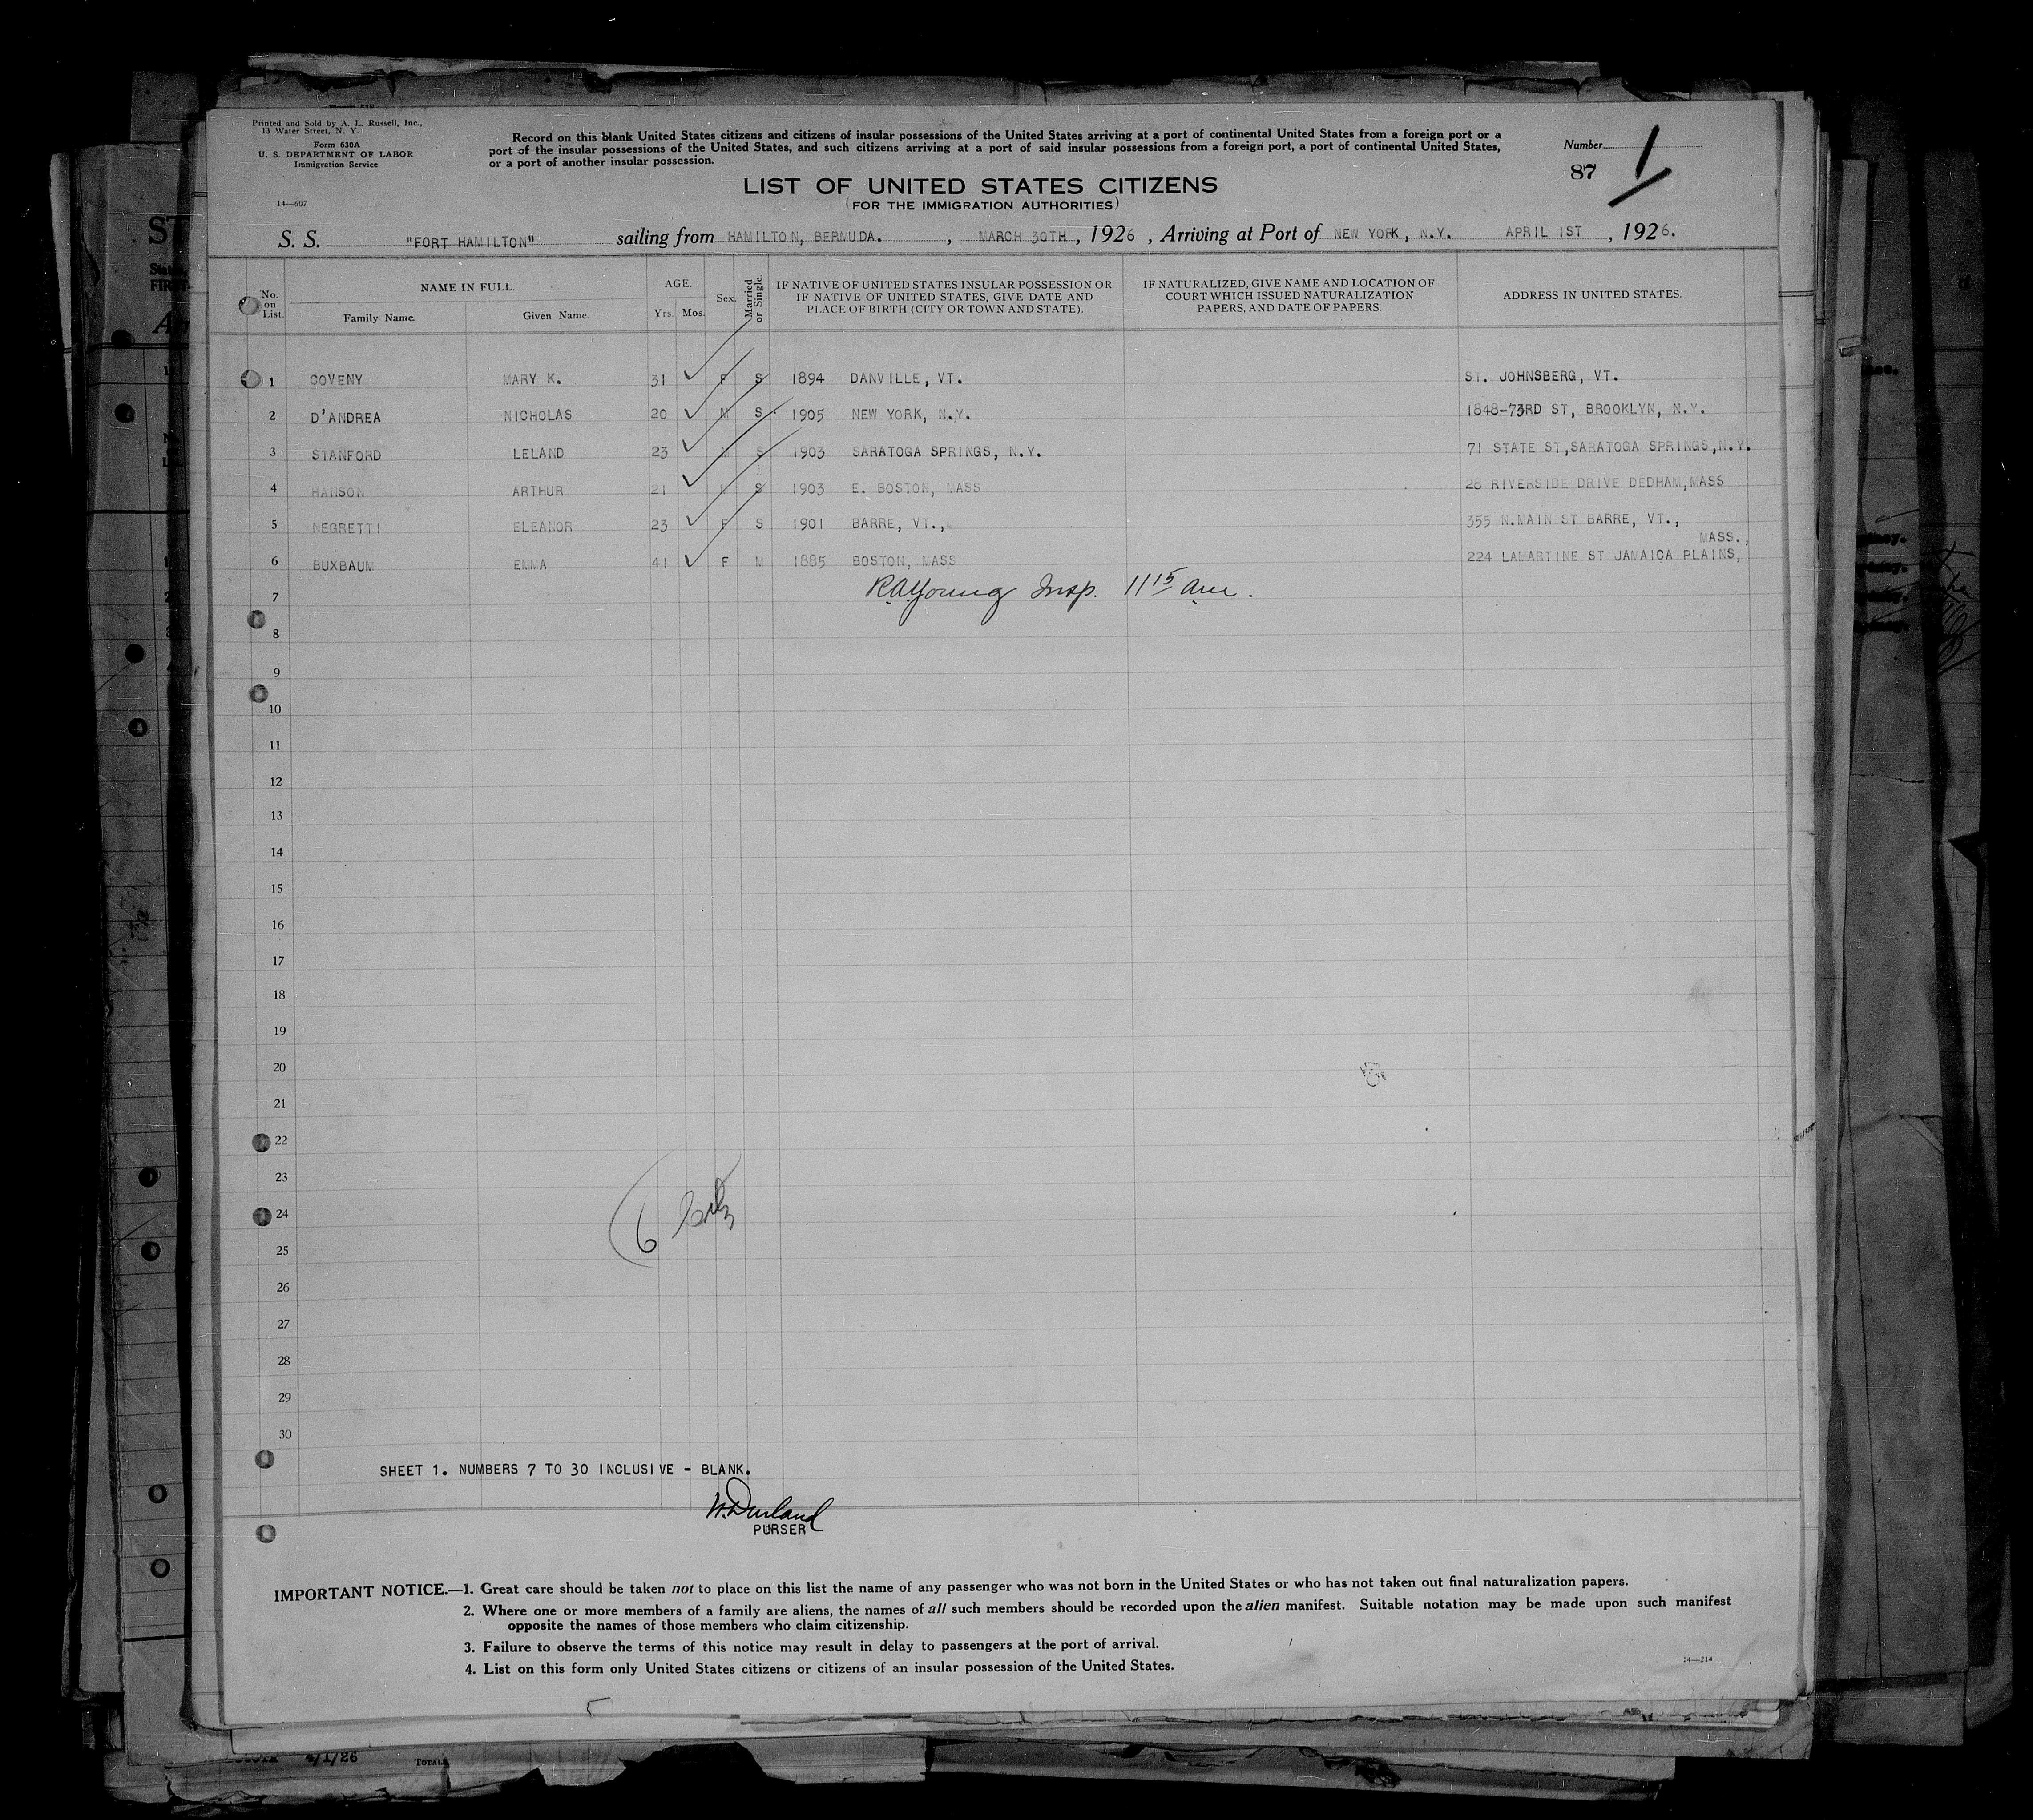 Printed and Sold by A. L. Russell, Inc.,
13 Water Street, N. Y.
Form 630A
U. S. DEPARTMENT OF LABOR
Immigration Service
14—607
Record on this blank United States citizens and citizens of insular possessions of the United States arriving at a port of continental United States from a foreign port or a
port of the insular possessions of the United States, and such citizens arriving at a port of said insular possessions from a foreign port, a port of continental United States,
or a port of another insular possession.
Number 1
87
LIST OF UNITED STATES CITIZENS
(FOR THE IMMIGRATION AUTHORITIES)
S. S. "FORT HAMILTON" sailing from HAMILTON, BERMUDA. , MARCH 30TH , 1926 , Arriving at Port of NEW YORK, N.Y. APRIL 1ST , 1926.
No. on List. NAME IN FULL. Family Name. Given Name. AGE. Yrs. Mos. Sex. Married or Single. IF NATIVE OF UNITED STATES INSULAR POSSESSION OR IF NATIVE OF UNITED STATES, GIVE DATE AND PLACE OF BIRTH (CITY OR TOWN AND STATE). IF NATURALIZED, GIVE NAME AND LOCATION OF COURT WHICH ISSUED NATURALIZATION PAPERS, AND DATE OF PAPERS. ADDRESS IN UNITED STATES.
1 COVENY MARY K. 31 F S 1894 DANVILLE, VT. ST. JOHNSBERG, VT.
2 D'ANDREA NICHOLAS 20 M S 1905 NEW YORK, N.Y. 1848-73RD ST, BROOKLYN, N.Y.
3 STANFORD LELAND 23 M S 1903 SARATOGA SPRINGS, N.Y. 71 STATE ST,SARATOGA SPRINGS,N.Y.
4 HANSON ARTHUR 21 M S 1903 E. BOSTON, MASS 28 RIVERSIDE DRIVE DEDHAM,MASS
5 NEGRETTI ELEANOR 23 F S 1901 BARRE, VT., 355 N.MAIN ST BARRE, VT.,
MASS.,
6 BUXBAUM EMMA 41 F M 1885 BOSTON, MASS 224 LAMARTINE ST JAMAICA PLAINS,
7 R.A.Young Insp. 11 15 am.
8
9
10
11
12
13
14
15
16
17
18
19
20
21
22
23
24
6
25
26
27
28
29
30
SHEET 1. NUMBERS 7 TO 30 INCLUSIVE - BLANK.
W. Durland
PURSER
IMPORTANT NOTICE.—1. Great care should be taken not to place on this list the name of any passenger who was not born in the United States or who has not taken out final naturalization papers.
2. Where one or more members of a family are aliens, the names of all such members should be recorded upon the alien manifest. Suitable notation may be made upon such manifest
opposite the names of those members who claim citizenship.
3. Failure to observe the terms of this notice may result in delay to passengers at the port of arrival.
4. List on this form only United States citizens or citizens of an insular possession of the United States.
14—214
4/1/26 TOTAL